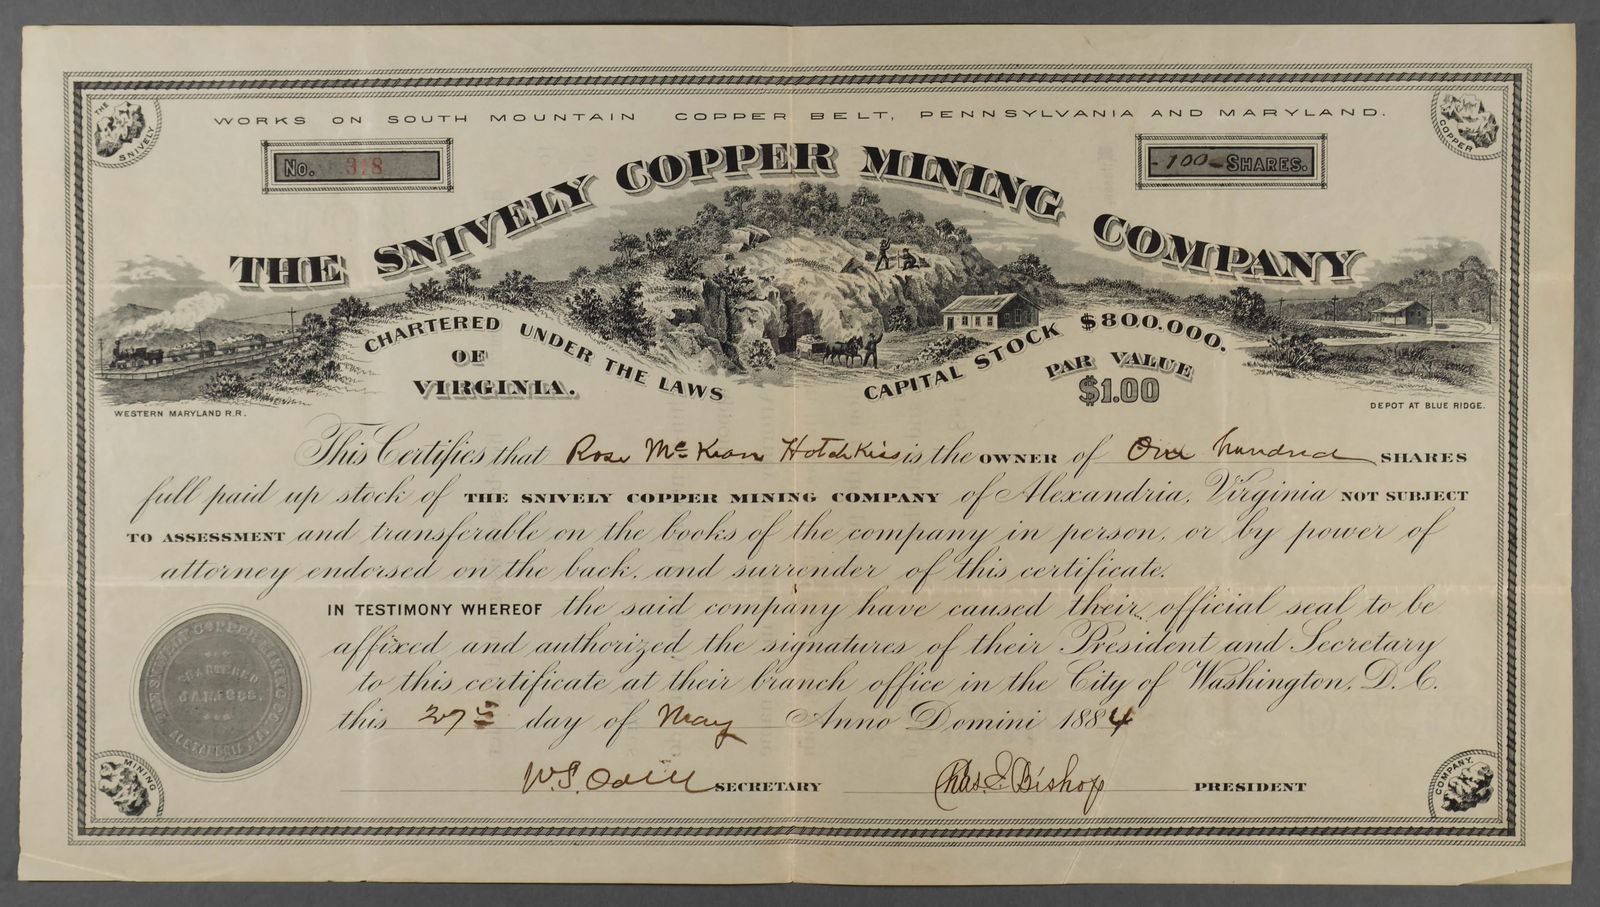 WORKS ON SOUTH MOUNTAIN COPPER BELT, PENNSYLVANIA AND MARYLAND.
THE SNIVELY
COPPER
No. 318
-100- SHARES.
THE SNIVELY COPPER MINING COMPANY
CHARTERED UNDER THE LAWS
OF
VIRGINIA.
CAPITAL STOCK $800.000.
PAR VALUE
$1.00
WESTERN MARYLAND R.R.
DEPOT AT BLUE RIDGE.
This Certifies that Rose McKean Hotchkiss is the OWNER of One hundred SHARES
full paid up stock of THE SNIVELY COPPER MINING COMPANY of Alexandria, Virginia NOT SUBJECT
TO ASSESSMENT and transferable on the books of the company in person, or by power of
attorney endorsed on the back, and surrender of this certificate.
IN TESTIMONY WHEREOF the said company have caused their official seal to be
affixed and authorized the signatures of their President and Secretary
to this certificate at their branch office in the City of Washington, D.C.
this 27th day of May Anno Domini 1884
THE SNIVELY COPPER MINING CO.
CHARTERED
ALEXANDRIA, VA.
W.S. Odell SECRETARY
Chas. E. Bishop PRESIDENT
MINING
COMPANY.